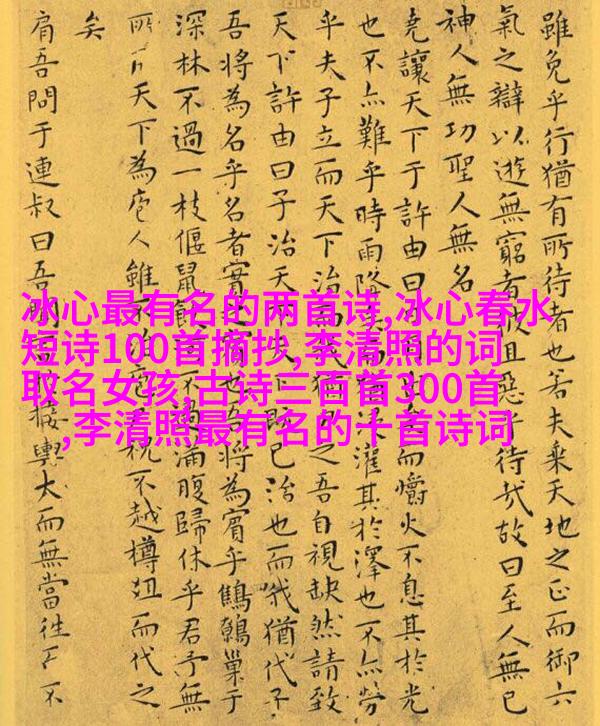 雖免乎行猶有所待者也若夫乘天地之正而御六
氣之辯以遊無窮者彼且惡乎待哉故曰至人無己
神人無功聖人無名
堯讓天下于許由曰日而爝火不息其於光
也不亦難乎時雨降矣浸灌其於澤也不亦勞
乎夫子立而天下治猶之吾自視缺然請致
天下許由曰子治天下既已治也而我猶代子
吾將為名乎名者實之賓也吾將為賓乎鷦鷯巢于
深林不過一枝偃鼠飲不滿腹歸休乎君予無
所天下為庖人雖不治庖祝不越樽俎而代之
矣
肩吾問于連叔曰吾聞接輿大而無當往而不
冰心最有名的两首诗,冰心春水
短诗100首摘抄,李清照的词
取名女孩,古诗三百首300首
,李清照最有名的十首诗词